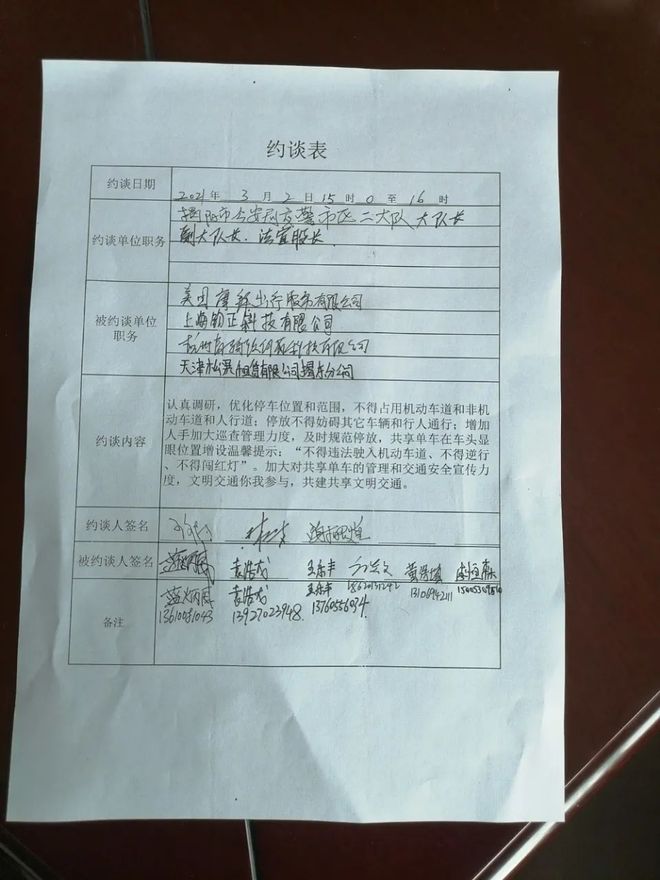 约谈表
约谈日期
2021年 3 月 2 日 15 时 0 至 16 时
约谈单位职务
揭阳市公安局交警市区二大队 大队长
副大队长、法宣股长
被约谈单位
职务
美团 出行服务有限公司
上海钧正科技有限公司
科技有限公司
天津 租赁有限公司揭东分公司
约谈内容
认真调研，优化停车位置和范围，不得占用机动车道和非机
动车道和人行道；停放不得妨碍其它车辆和行人通行；增加
人手加大巡查管理力度，及时规范停放，共享单车在车头显
眼位置增设温馨提示：“不得违法驶入机动车道、不得逆行
、不得闯红灯”。加大对共享单车的管理和交通安全宣传力
度，文明交通你我参与，共建共享文明交通。
约谈人签名
被约谈人签名
袁浩茂 王东丰
备注
袁浩茂 王东丰
13927023948 13760556034